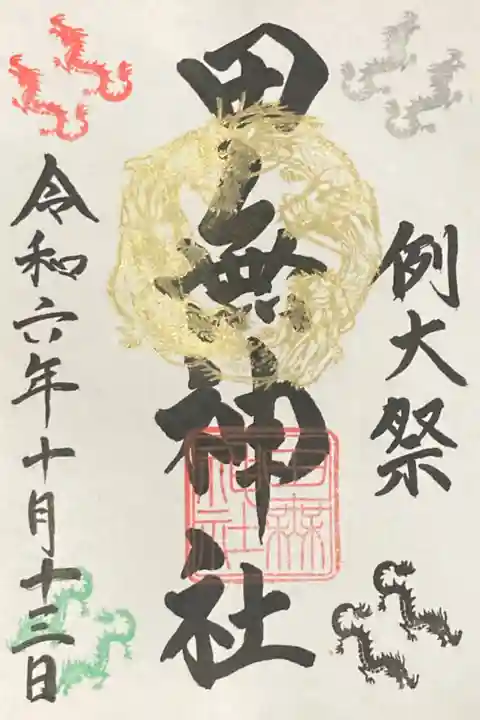 例大祭
田無神社
令和六年十月十三日
田無神社